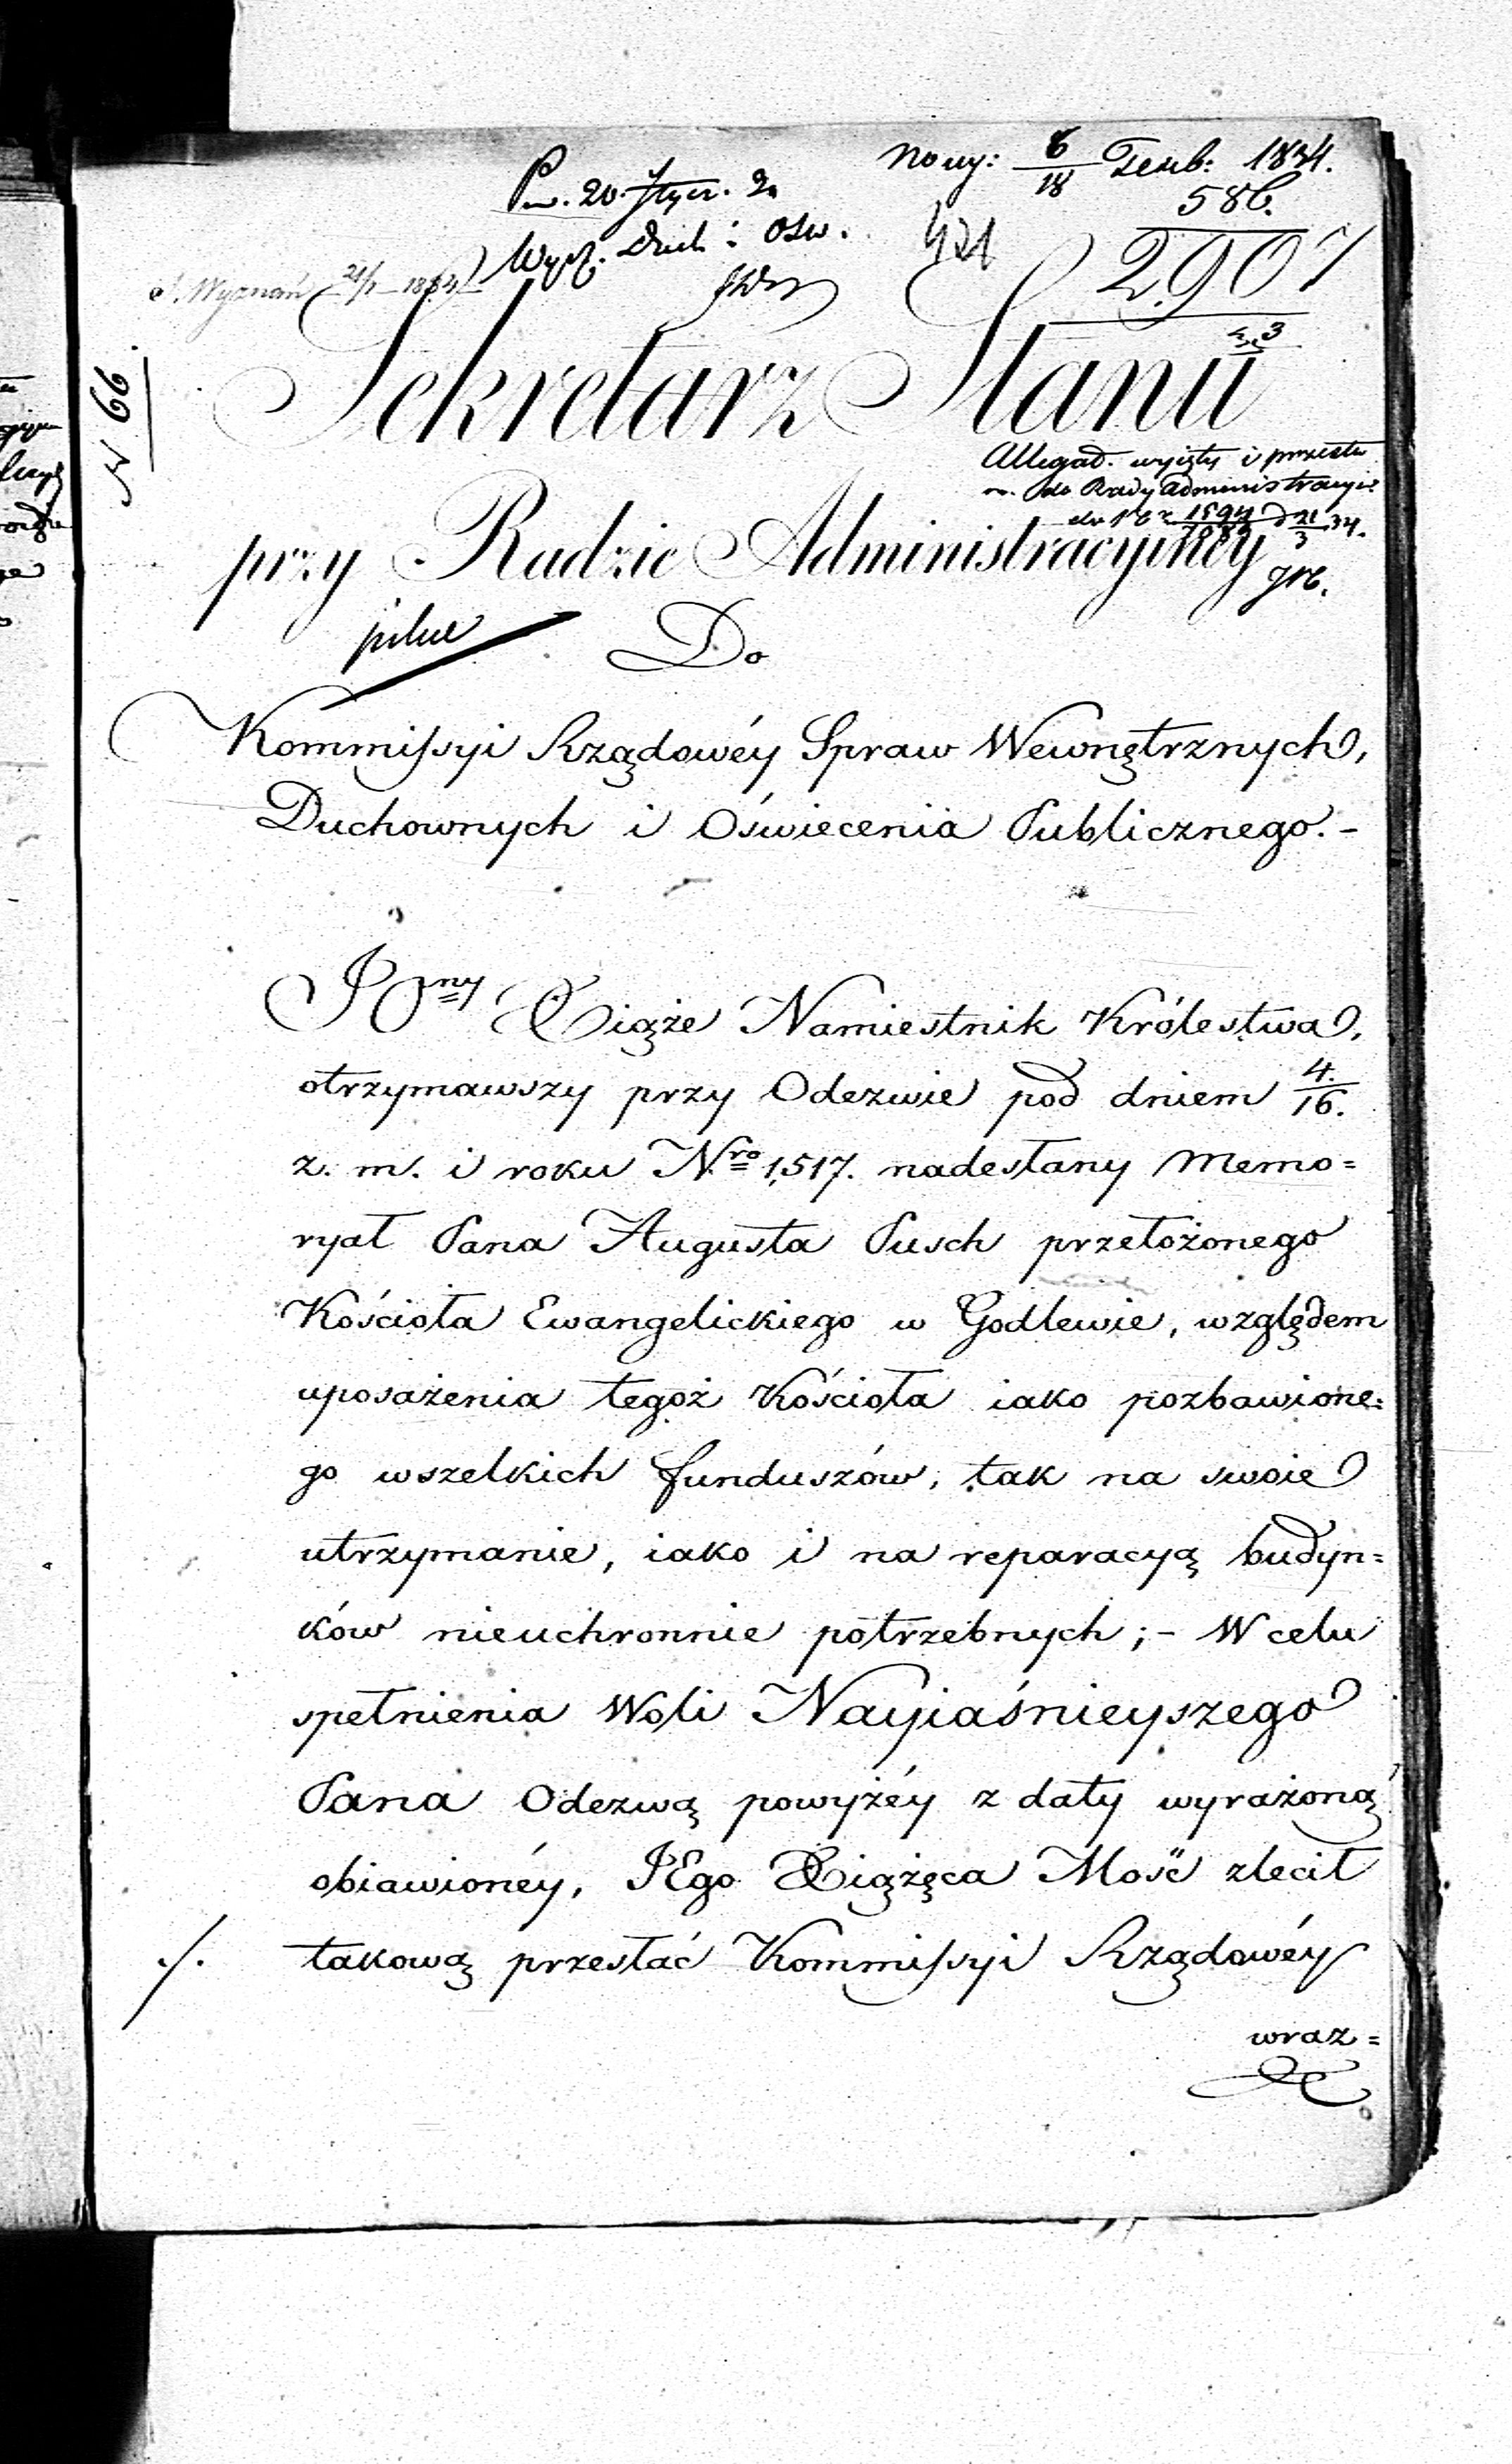 6/18 1834.
586.
2907
Wydz. Duch: Ośw.
N 66.
Sekretarz Stanu
Allegat. wyięty i przesła
do Rady Administracyi:
przy Radzie Administracyiney
pilne
Do
Kommissyi Rządowéy Spraw Wewnętrznych,
Duchownych i Oświecenia Publicznego.-
JO ny Xiąże Namiestnik Królestwa,
otrzymawszy przy Odezwie pod dniem 4/16.
z. m. i roku Nro 1,517. nadesłany Memo=
ryał Pana Augusta Pusch przełożonego
Kościoła Ewangelickiego w Godlewie, względem
uposażenia tegoż Kościoła iako pozbawione=
go wszelkich funduszów, tak na swoie
utrzymanie, iako i na reparacyą budyn=
ków nieuchronnie potrzebnych;- W celu
spełnienia Woli Nayiaśnieyszego
Pana Odezwą powyżéy z daty wyrażoną
obiawionéy, JEgo Xiążęca Mość zlecił
./. takową przesłać Kommissyi Rządowéy
wraz=